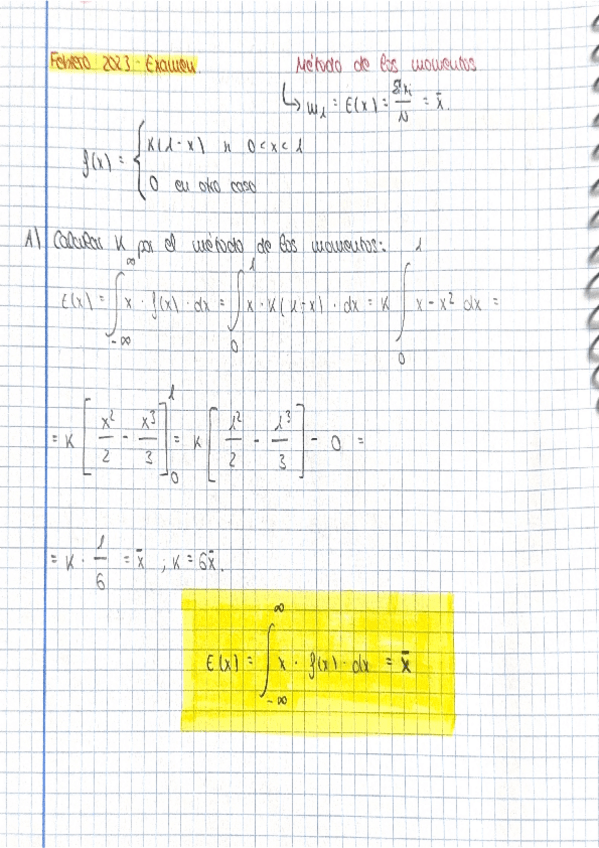 Febrero 2023 - Examen.
Método de los momentos
↳ m1 = E(x) = Σxi/N = x̄.
f(x) = { K(1-x) si 0<x<1
0 en otro caso
A) Calcular K por el método de los momentos:
E(x) = ∫_{-∞}^{∞} x · f(x) · dx = ∫_0^1 x · K(1-x) · dx = K ∫_0^1 x - x² dx =
= K [x²/2 - x³/3]_0^1 = K [1²/2 - 1³/3] - 0 =
= K · 1/6 = x̄ ; K = 6x̄.
E(x) = ∫_{-∞}^{∞} x · f(x) · dx = x̄